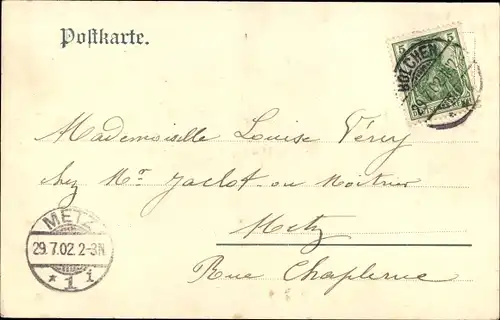 Postkarte.
5
BOLCHEN
Mademoiselle Louise Véry
chez Mr. Jaclot ou Moitrier
Metz
Rue Chaplerue
METZ
29.7.02.2-3N
* 1 i